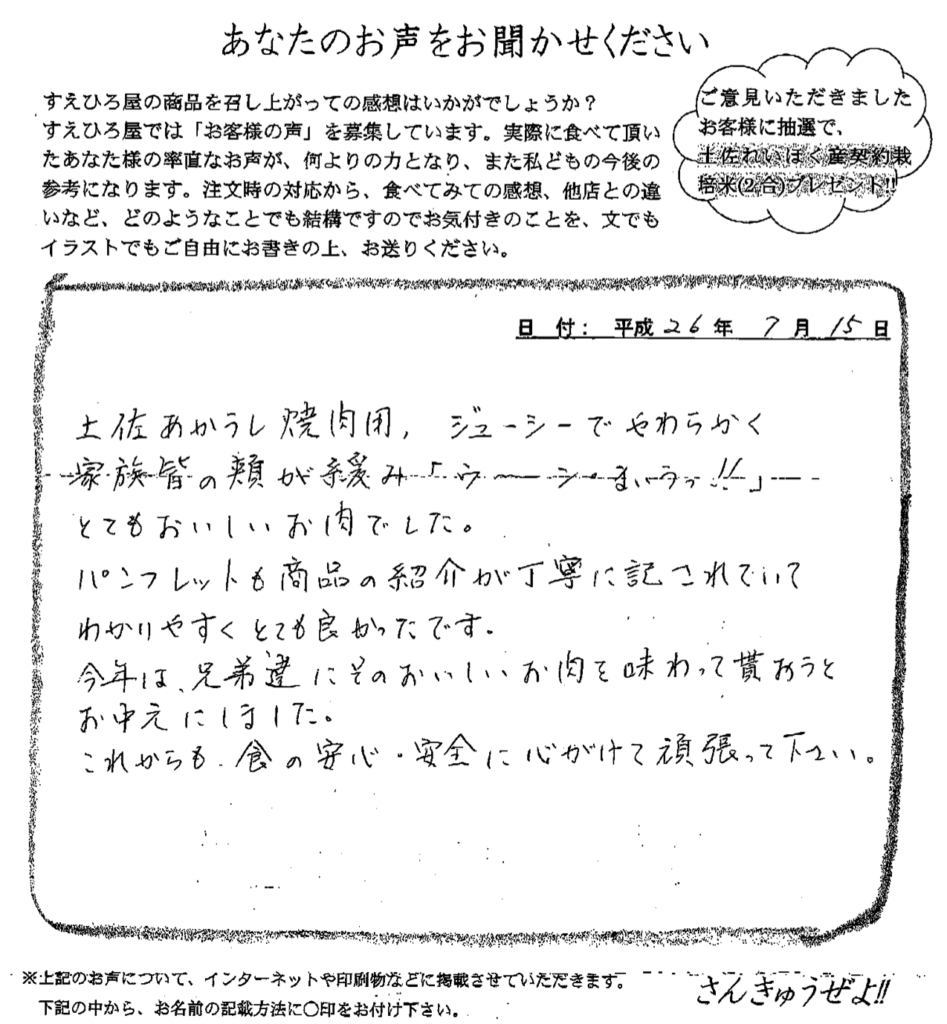 あなたのお声をお聞かせください
すえひろ屋の商品を召し上がっての感想はいかがでしょうか?
すえひろ屋では「お客様の声」を募集しています。実際に食べて頂い
たあなた様の率直なお声が、何よりの力となり、また私どもの今後の
参考になります。注文時の対応から、食べてみての感想、他店との違
いなど、どのようなことでも結構ですのでお気付きのことを、文でも
イラストでもご自由にお書きの上、お送りください。
ご意見いただきました
お客様に抽選で、
土佐れいほく産契約栽
培米(2合)プレゼント!!
日 付: 平成 26 年 7 月 15 日
土佐あかうし焼肉用, ジューシーでやわらかく
家族皆の頬が緩み「ウ〜〜シ・まいうっ!!」
とてもおいしいお肉でした。
パンフレットも商品の紹介が丁寧に記されていて
わかりやすくとても良かったです。
今年は、兄弟達にそのおいしいお肉を味わって貰おうと
お中元にしました。
これからも、食の安心・安全に心がけて頑張って下さい。
※上記のお声について、インターネットや印刷物などに掲載させていただきます。
下記の中から、お名前の記載方法に○印をお付け下さい。
さんきゅうぜよ!!